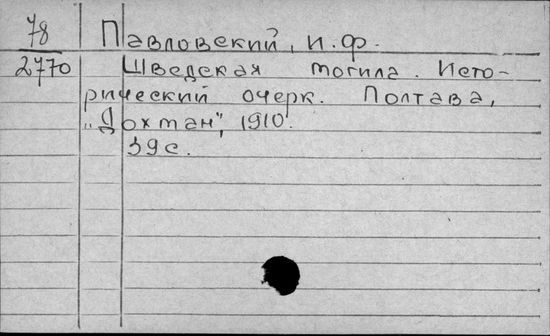 78 Павловский, И.Ф.
2770 Шведская могила. Исто-
рический очерк. Полтава,
„Дохман", 1910.
39с.